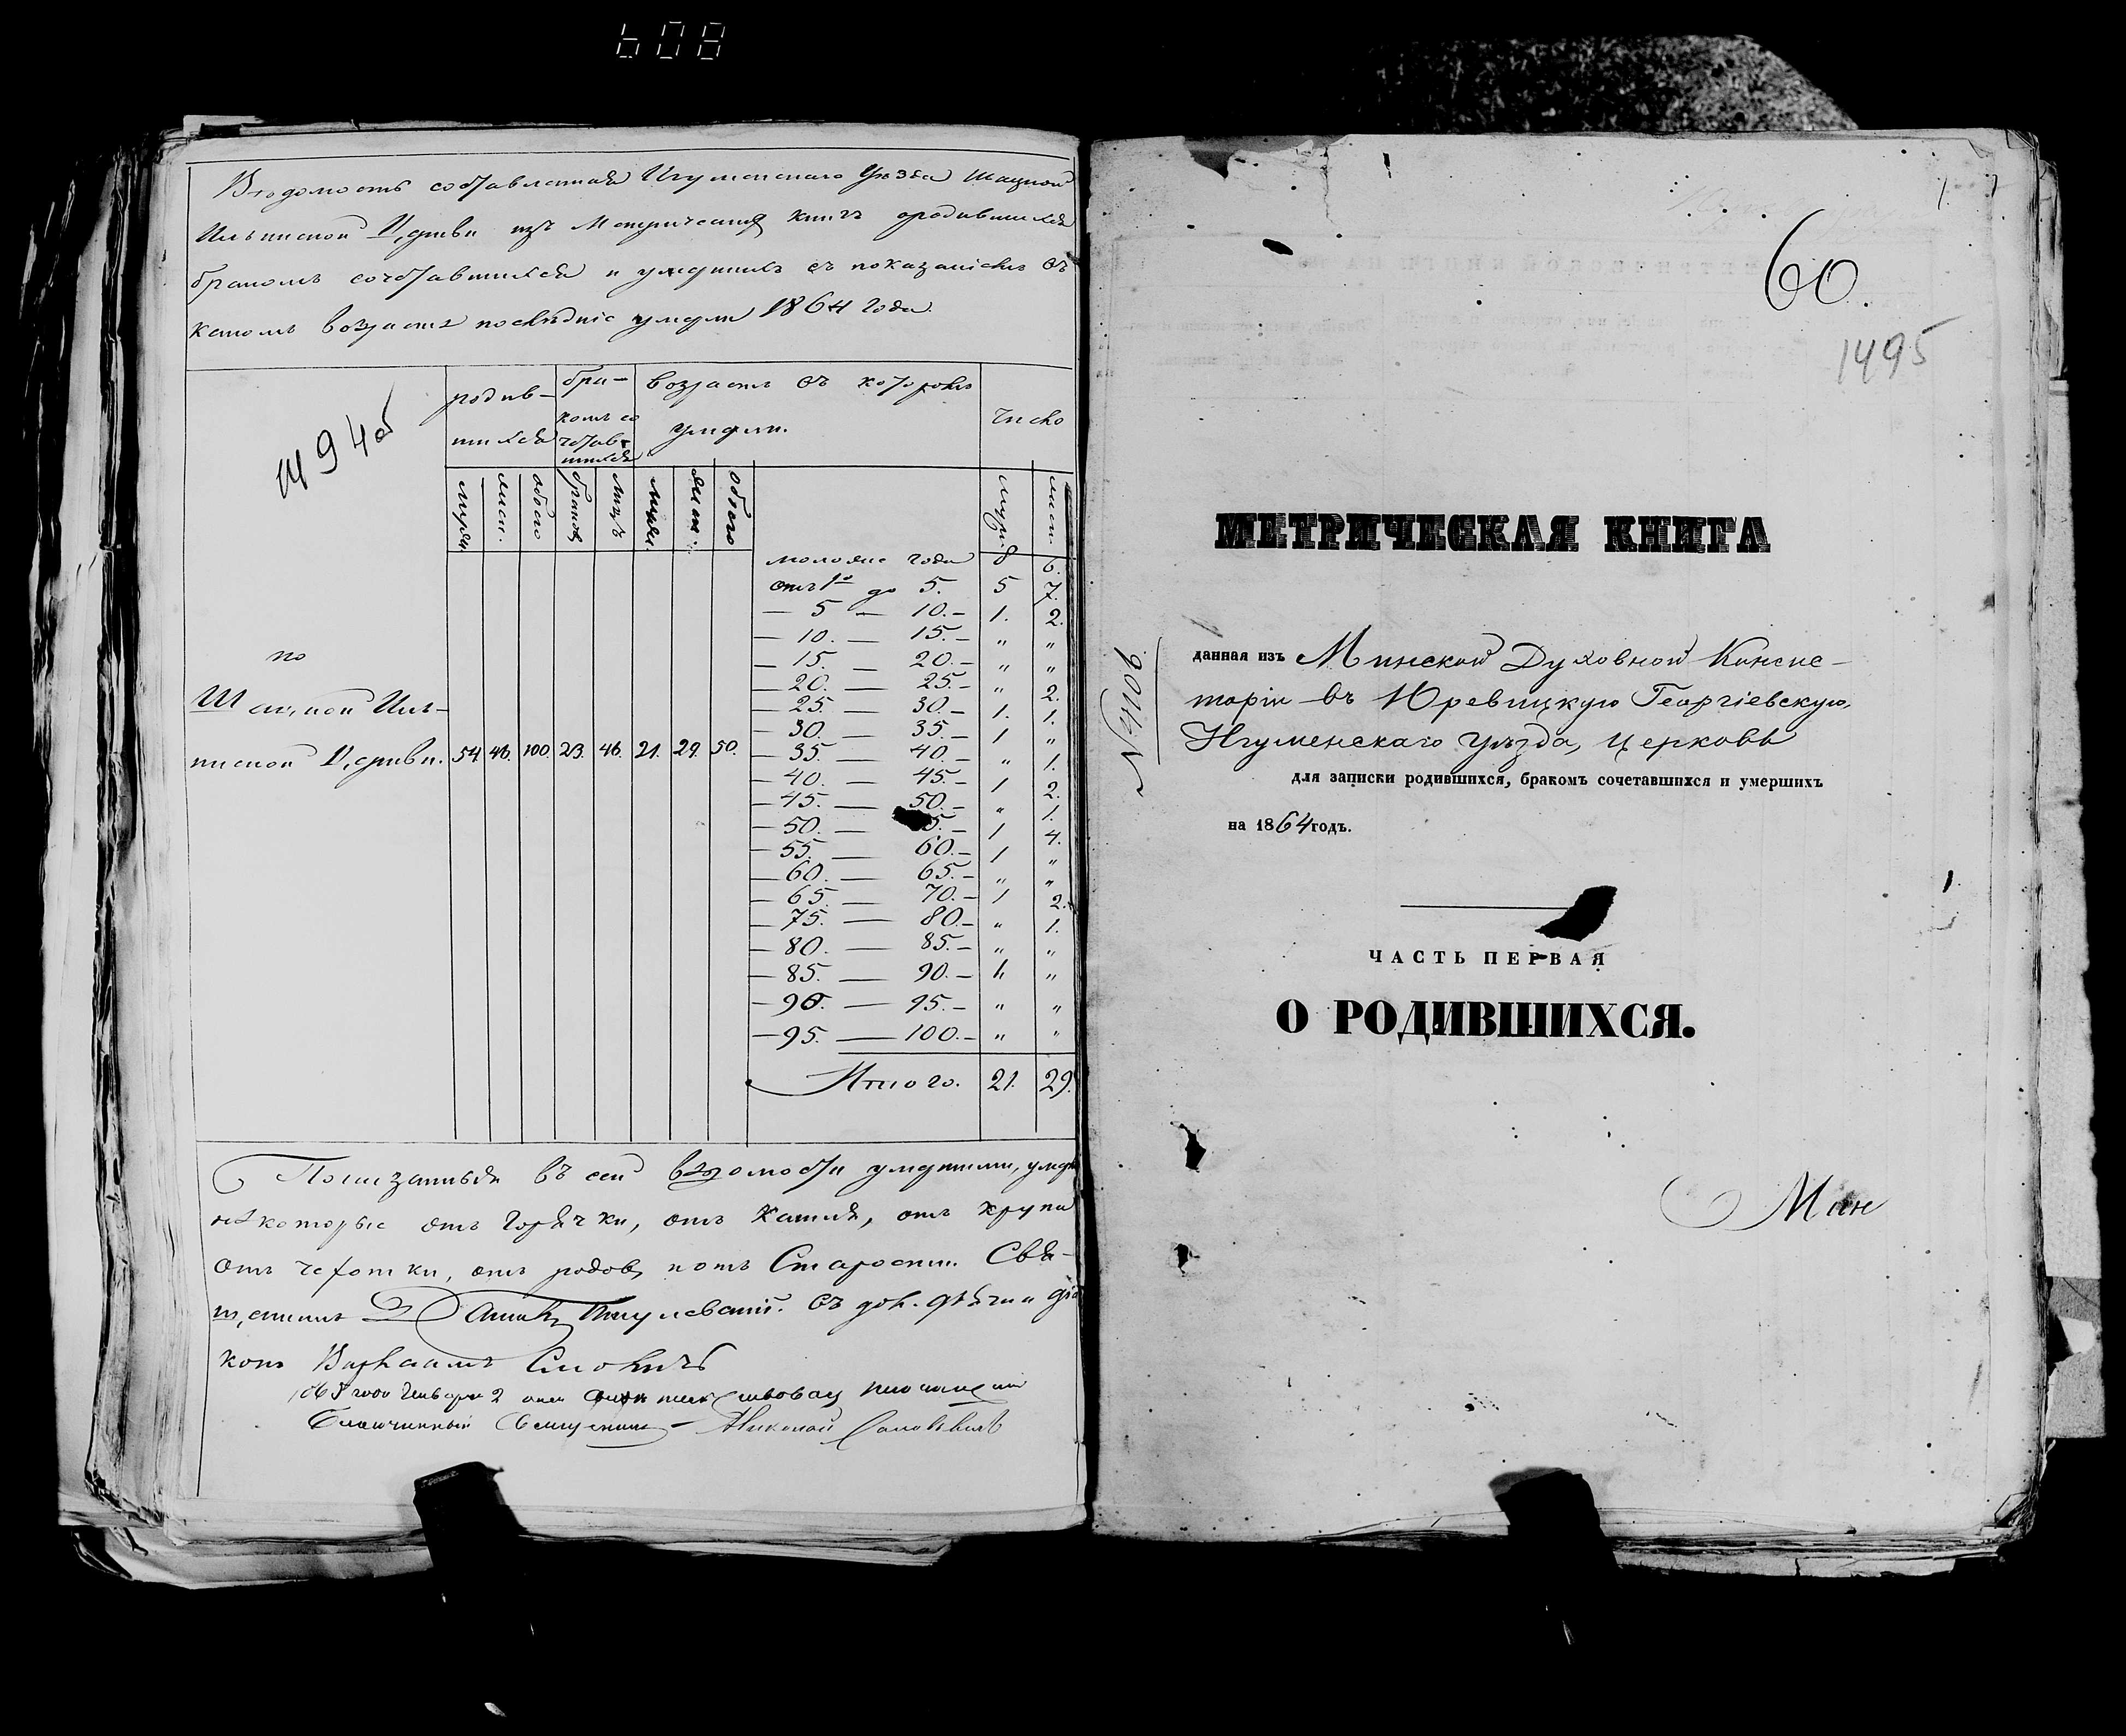 608
Вѣдомость составленная Игуменскаго Уѣзда Шацкой
Ильинской Церкви изъ Метрическихъ книгъ о родившихся
бракомъ сочетавшихся и умершихъ съ показаніемъ въ
какомъ возрастѣ послѣдніе умерли 1864 года.
родив-
шихся
бра-
комъ со
четав-
шихся
возрастъ въ которомъ
умерли.
Число
муж.
жен.
обоего
браковъ
лицъ
муж.
жен.
обоего
муж.
жен.
моложе года 8 6.
отъ 1го до 5. 5 7.
— 5 — 10.— 1. 2.
— 10. — 15.— " "
— 15. — 20.— " "
— 20. — 25.— " 2.
— 25. — 30.— 1. 1.
— 30. — 35.— 1 "
— 35. — 40.— " 1.
— 40. — 45.— 1 2.
— 45. — 50.— " 1.
— 50. — 5.— 1 4.
— 55. — 60.— 1 "
— 60. — 65.— " "
— 65. — 70.— 1 2.
— 75. — 80.— " 1.
— 80. — 85.— " "
— 85. — 90.— 1. "
— 90. — 95.— " "
— 95. — 100.— " "
Итого. 21. 29.
по
Шацкой Иль-
инской Церкви. 54 46. 100. 23. 46. 21. 29. 50.
Показанныя въ сей вѣдомости умершими, умер
нѣкоторые отъ Горячки, отъ Кашля, отъ крупа
отъ чехотки, отъ родовъ, отъ Старости. Свя-
щенникъ съ дьячки дья
конъ Варлаамъ
1865 года Генваря 2 дня
Благочинный Священникъ Николай
60.
1495
МЕТРИЧЕСКАЯ КНИГА
№4109
данная изъ Минской Духовной Консис-
торіи въ Юревицкую Георгіевскую,
Игуменскаго уѣзда, церковь
для записки родившихся, бракомъ сочетавшихся и умершихъ
на 1864 годъ.
ЧАСТЬ ПЕРВАЯ
О РОДИВШИХСЯ.
Мин